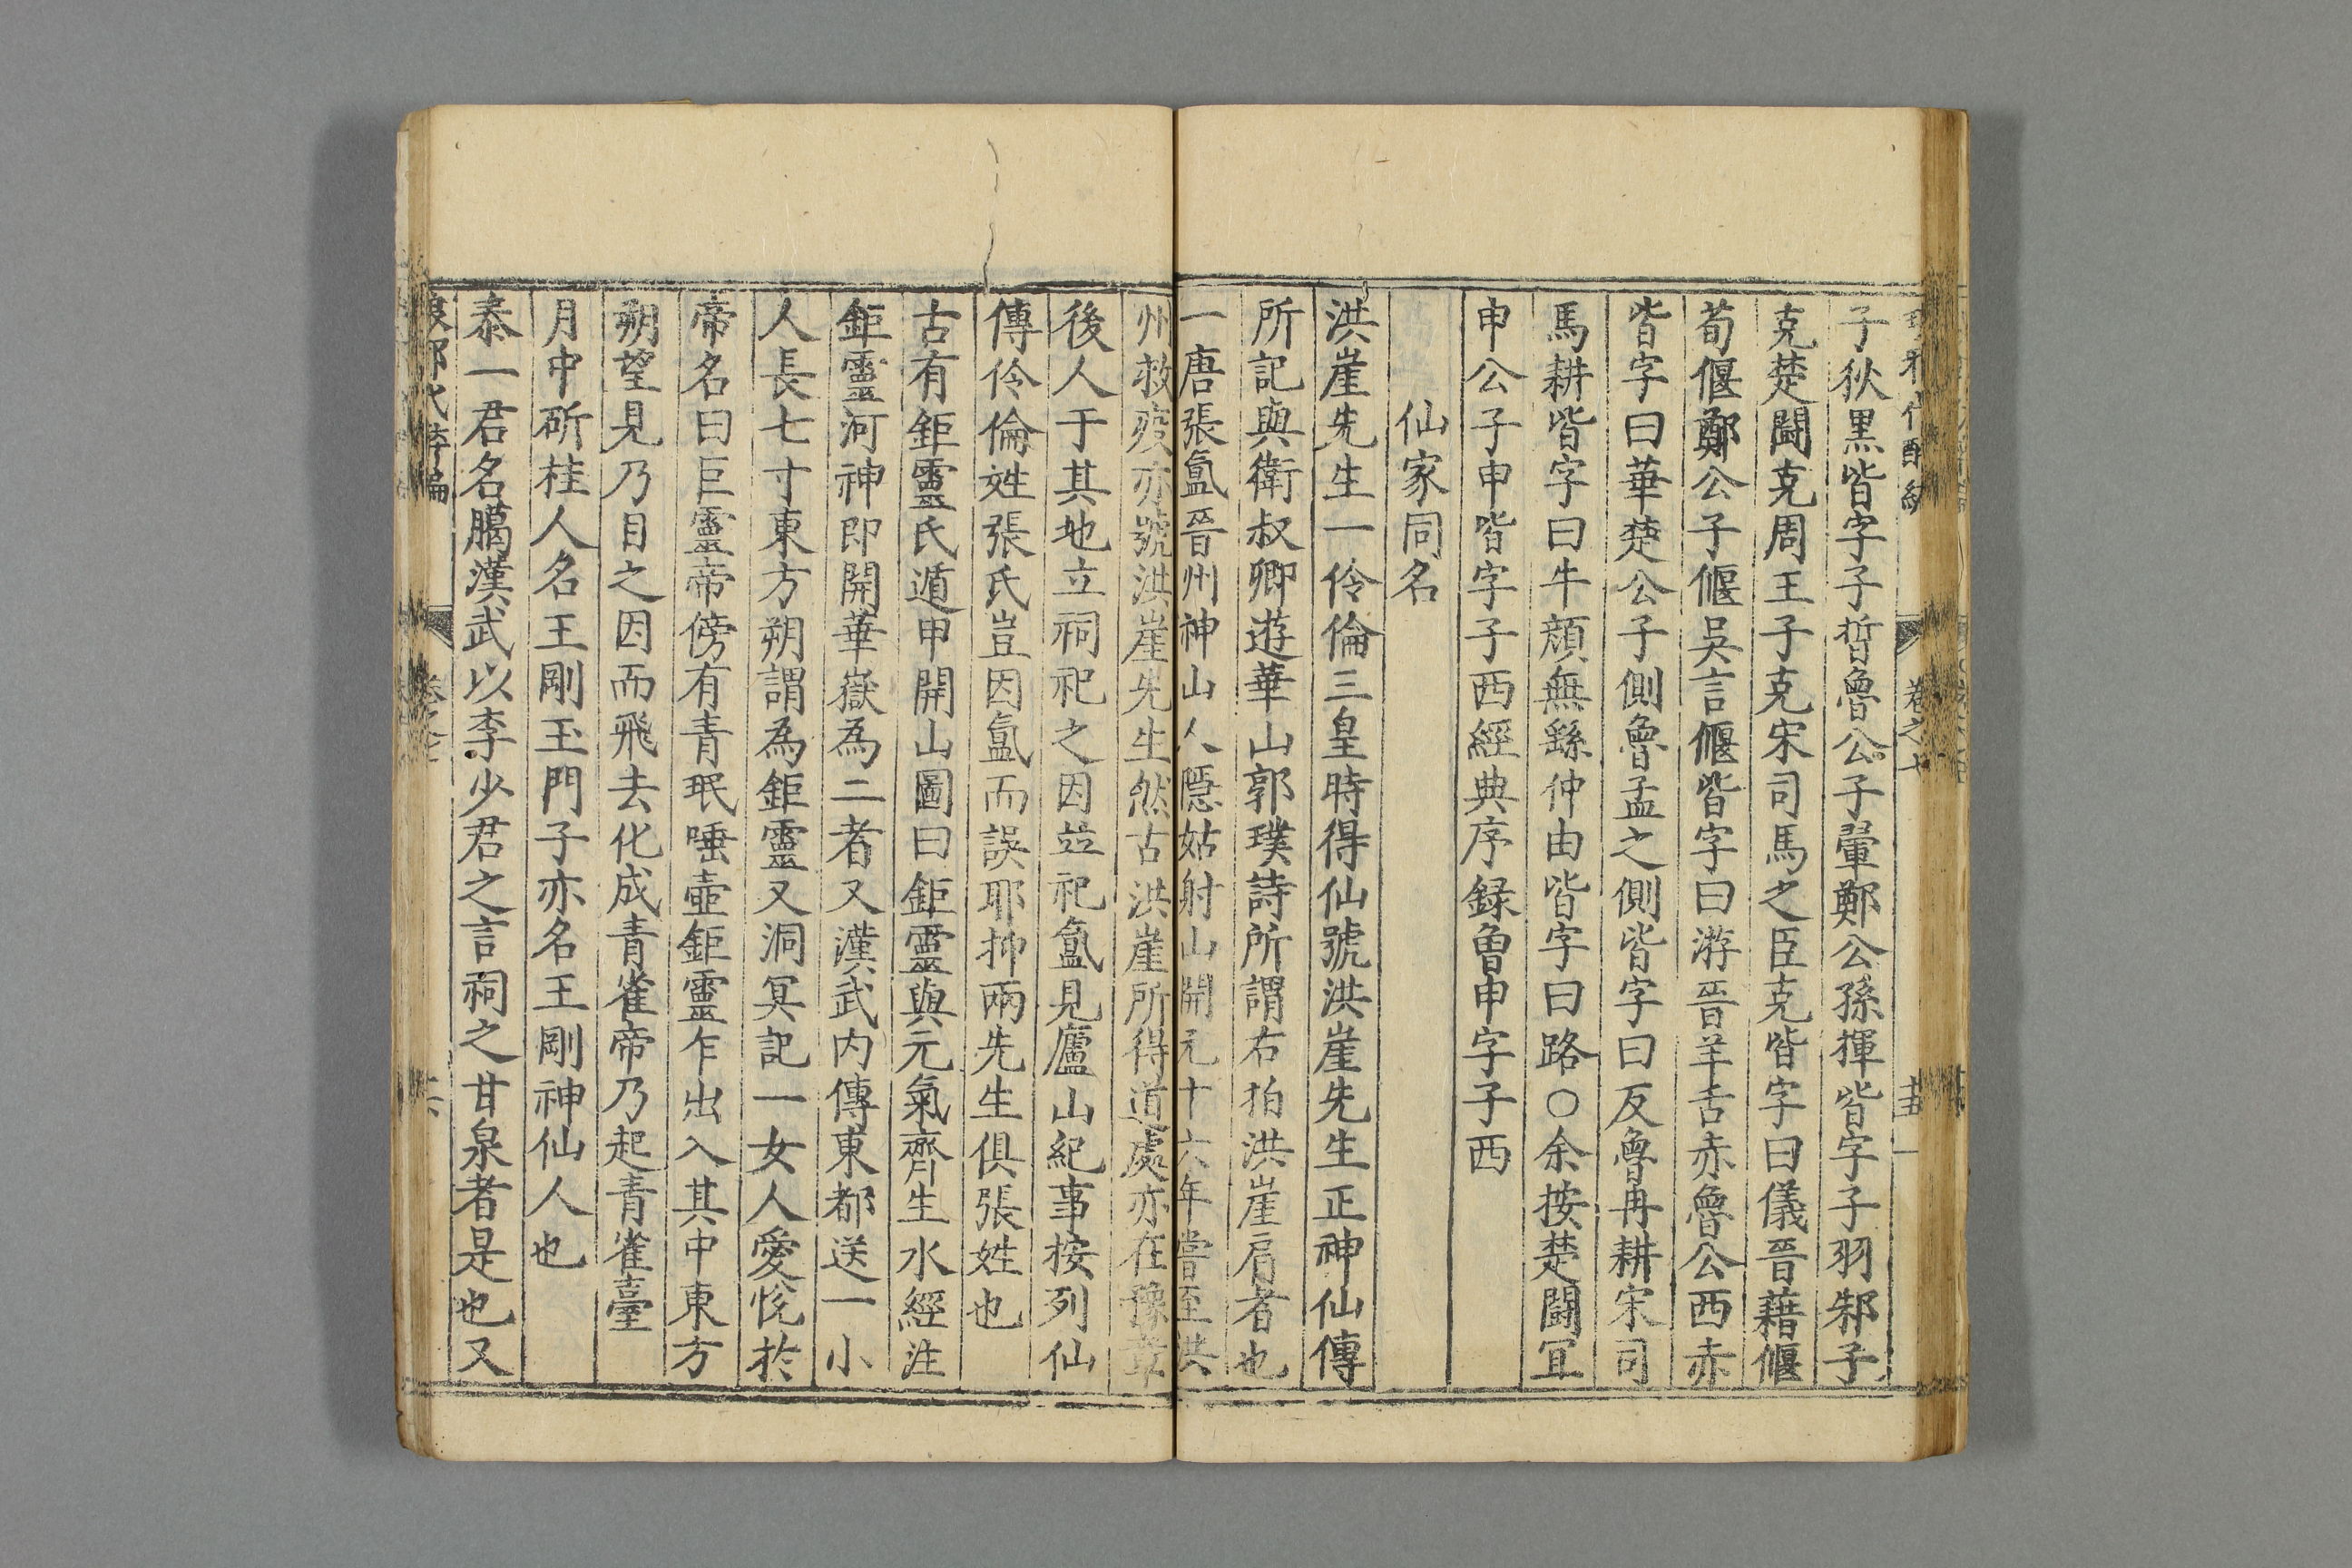 卷之七
子狄黒皆字子晳魯公子翬鄭公孫揮皆字子羽邾子
克楚鬬克周王子克宋司馬之臣克皆字曰儀晉藉偃
荀偃鄭公子偃吳言偃皆字曰游晉羊舌赤魯公西赤
皆字曰華楚公子側魯孟之側皆字曰反魯冉耕宋司
馬耕皆字曰牛顔無繇仲由皆字曰路○余按楚鬬宜
申公子申皆字子西經典序録魯申字子西
仙家同名
洪崖先生一伶倫三皇時得仙號洪崖先生正神仙傳
所記與衛叔卿遊華山郭璞詩所謂右拍洪崖肩者也
一唐張氳晉州神山人隱姑射山開元十六年嘗至洪
州救疫亦號洪崖先生然古洪崖所得道處亦在豫章
後人于其地立祠祀之因並祀氳見廬山紀事按列仙
傳伶倫姓張氏豈因氳而誤耶抑兩先生俱張姓也
古有鉅靈氏遁甲開山圖曰鉅靈與元氣齊生水經注
鉅靈河神即開華嶽為二者又漢武内傳東都送一小
人長七寸東方朔謂為鉅靈又洞冥記一女人愛悅於
帝名曰巨靈帝傍有青珉唾壺鉅靈乍出入其中東方
朔望見乃目之因而飛去化成青雀帝乃起青雀臺
月中斫桂人名王剛玉門子亦名王剛神仙人也
泰一君名臈漢武以李少君之言祠之甘泉者是也又